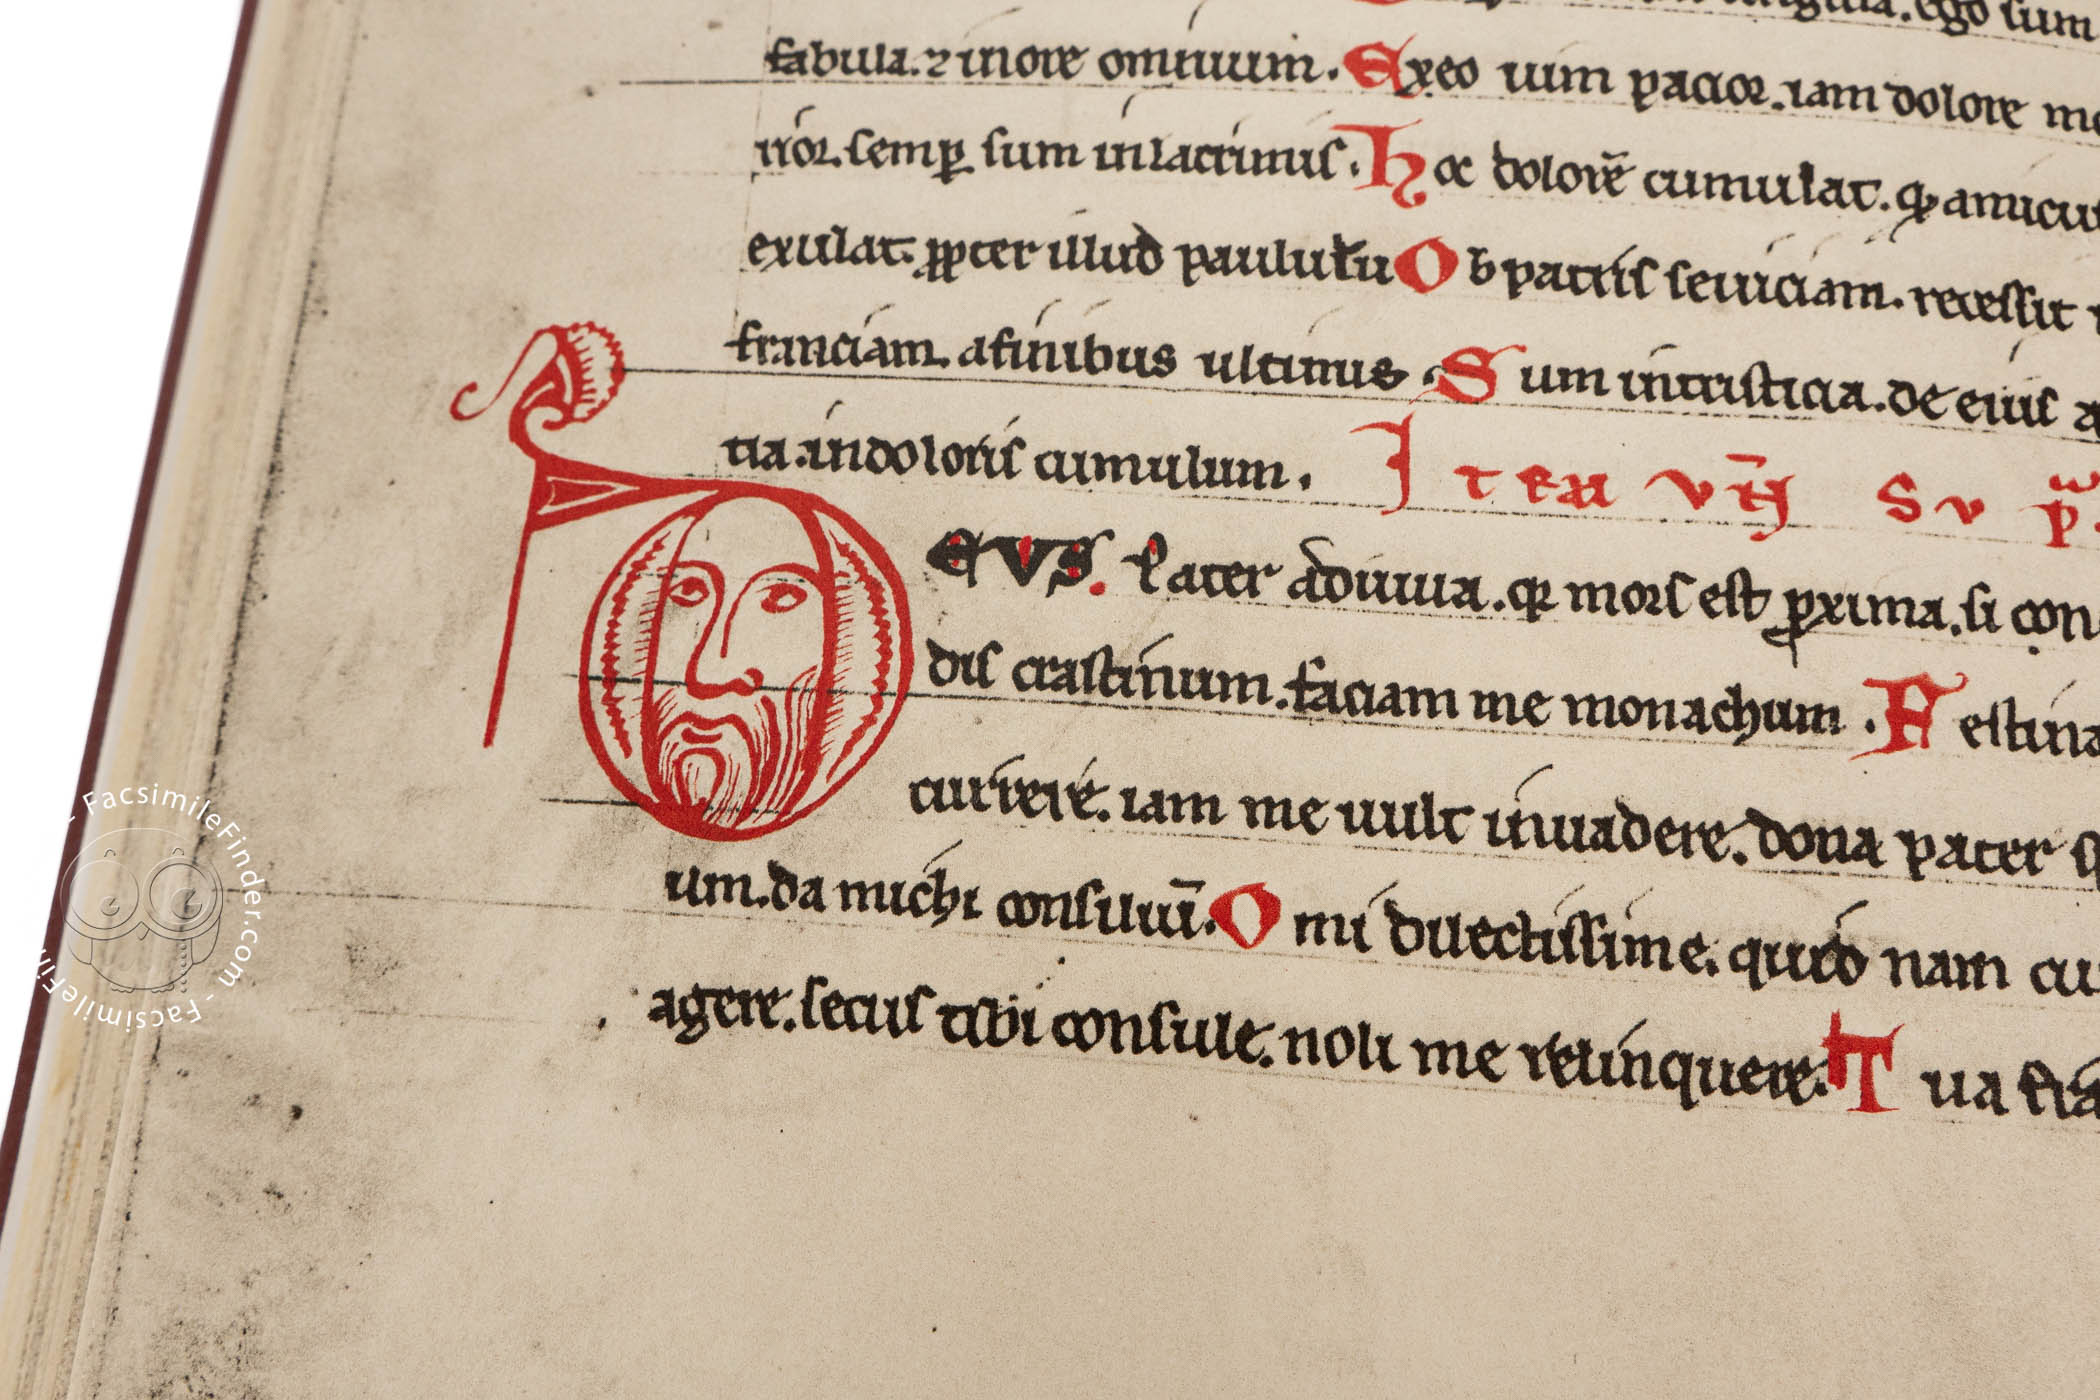 ego sum
fabula. ⁊ in ore omnium. Ex eo uim pacior. iam dolore mo
rior. semꝑ sum in lacrimis. Hoc dolorē cumulat. ꝙ amicus
exulat. ꝓpter illud paululū Ob patris seuiciam. recessit
franciam. a finibus ultimis. Sum in tristicia. de eius a
tia. in doloris cumulum. Item vn̄ sv p
DEVS. Pater adiuua. qr mors est ꝓxima. si con
dis crastinum. faciam me monachum. Festina
currere. iam me uult inuadere. dona pater
um. da michi consiliū. O mi dilectissime. quid nam cu
agere. secus tibi consule. noli me relinquere. Tua
FacsimileFinder.com - FacsimileFin